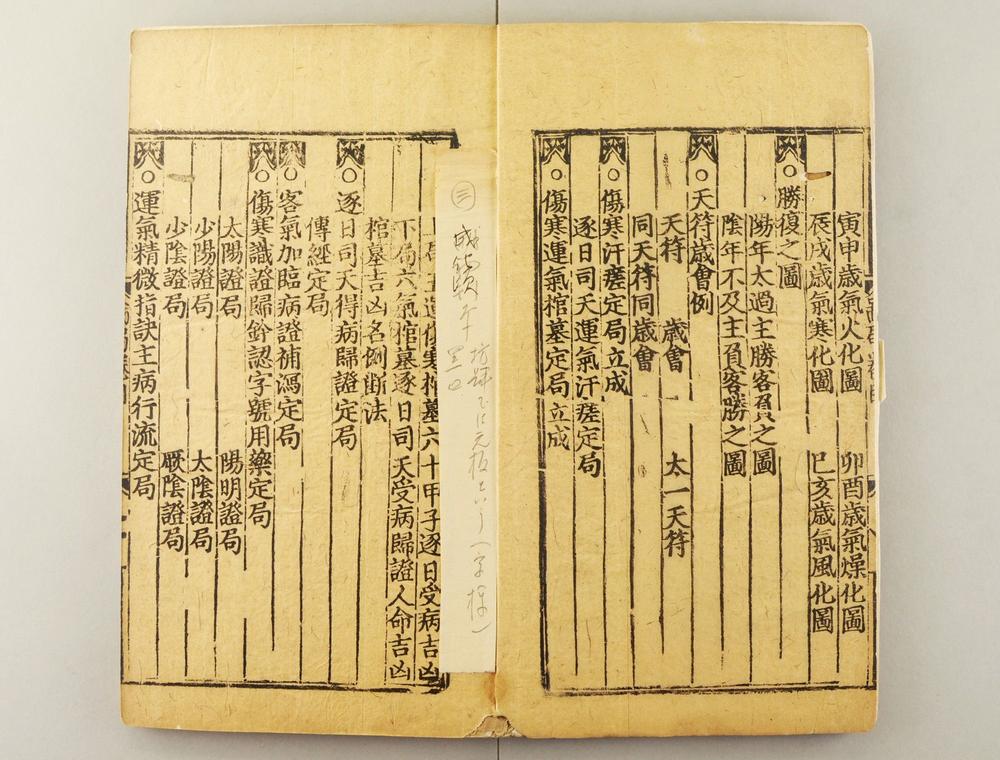 寅申歲氣火化圖 卯酉歲氣燥化圖
辰戌歲氣寒化圖 巳亥歲氣風化圖
○勝復之圖
陽年太過主勝客負之圖
陰年不及主負客勝之圖
○天符歲會例
天符 歲會 太一天符
同天符同歲會
○傷寒汗瘥定局立成
逐日司天運氣汗瘥定局
○傷寒運氣棺墓定局立成
五運傷寒棺墓六十甲子逐日受病吉凶
下局六氣棺墓逐日司天受病歸證人命吉凶
棺墓吉凶名例斷法
○逐日司天得病歸證定局
傳經定局
○客氣加臨病證補瀉定局
○傷寒識證歸鈐認字號用藥定局
太陽證局 陽明證局
少陽證局 太陰證局
少陰證局 厥陰證局
○運氣精微指訣主病行流定局